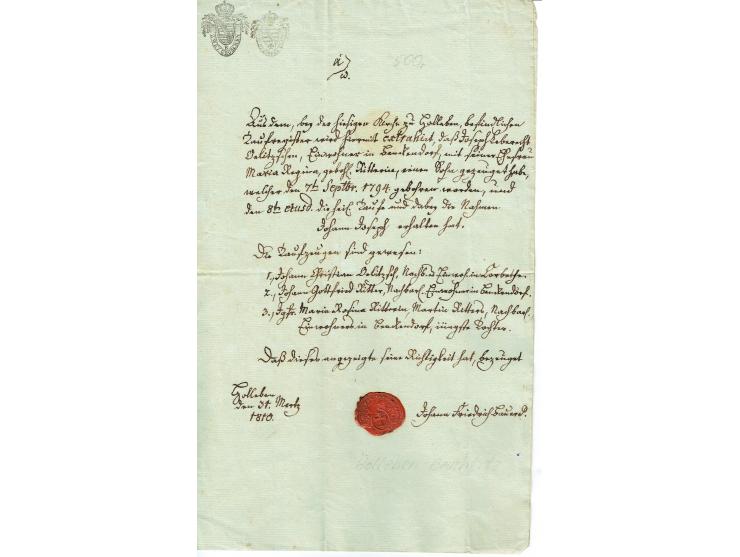 500,
Aus dem, bey der hiesigen Kirche zu Holleben, befindlichen
Taufregister wird hiermit extrahirt, daß Joseph Leberecht
Oelitzschen, Einwohner in Benckendorf, mit seiner Ehefrau
Maria Regina, gebohl. Ritterin, einen Sohn gezeuget habe,
welcher den 7t. Septbr. 1794. gebohren worden, und
den 8t. ejusd. die heil. Taufe und dabey die Nahmen
Johann Joseph erhalten hat.
Die Taufzeugen sind gewesen:
1., Johann Christian Oelitzsch, Nachb. u. Einwoh. in Corbetha.
2., Johann Gottfried Ritter, Nachbar, Einwohner in Benckendorf.
3., Jgfr. Maria Rosina Ritterin, Martin Ritters, Nachbar,
Einwohners in Benckendorf, jüngste Tochter.
Daß dieses angezeigte seine Richtigkeit hat, bezeuget
Holleben,
den 31. Mertz
1810.
Johann Friedrich Bauer
Holleben-Benkendorf